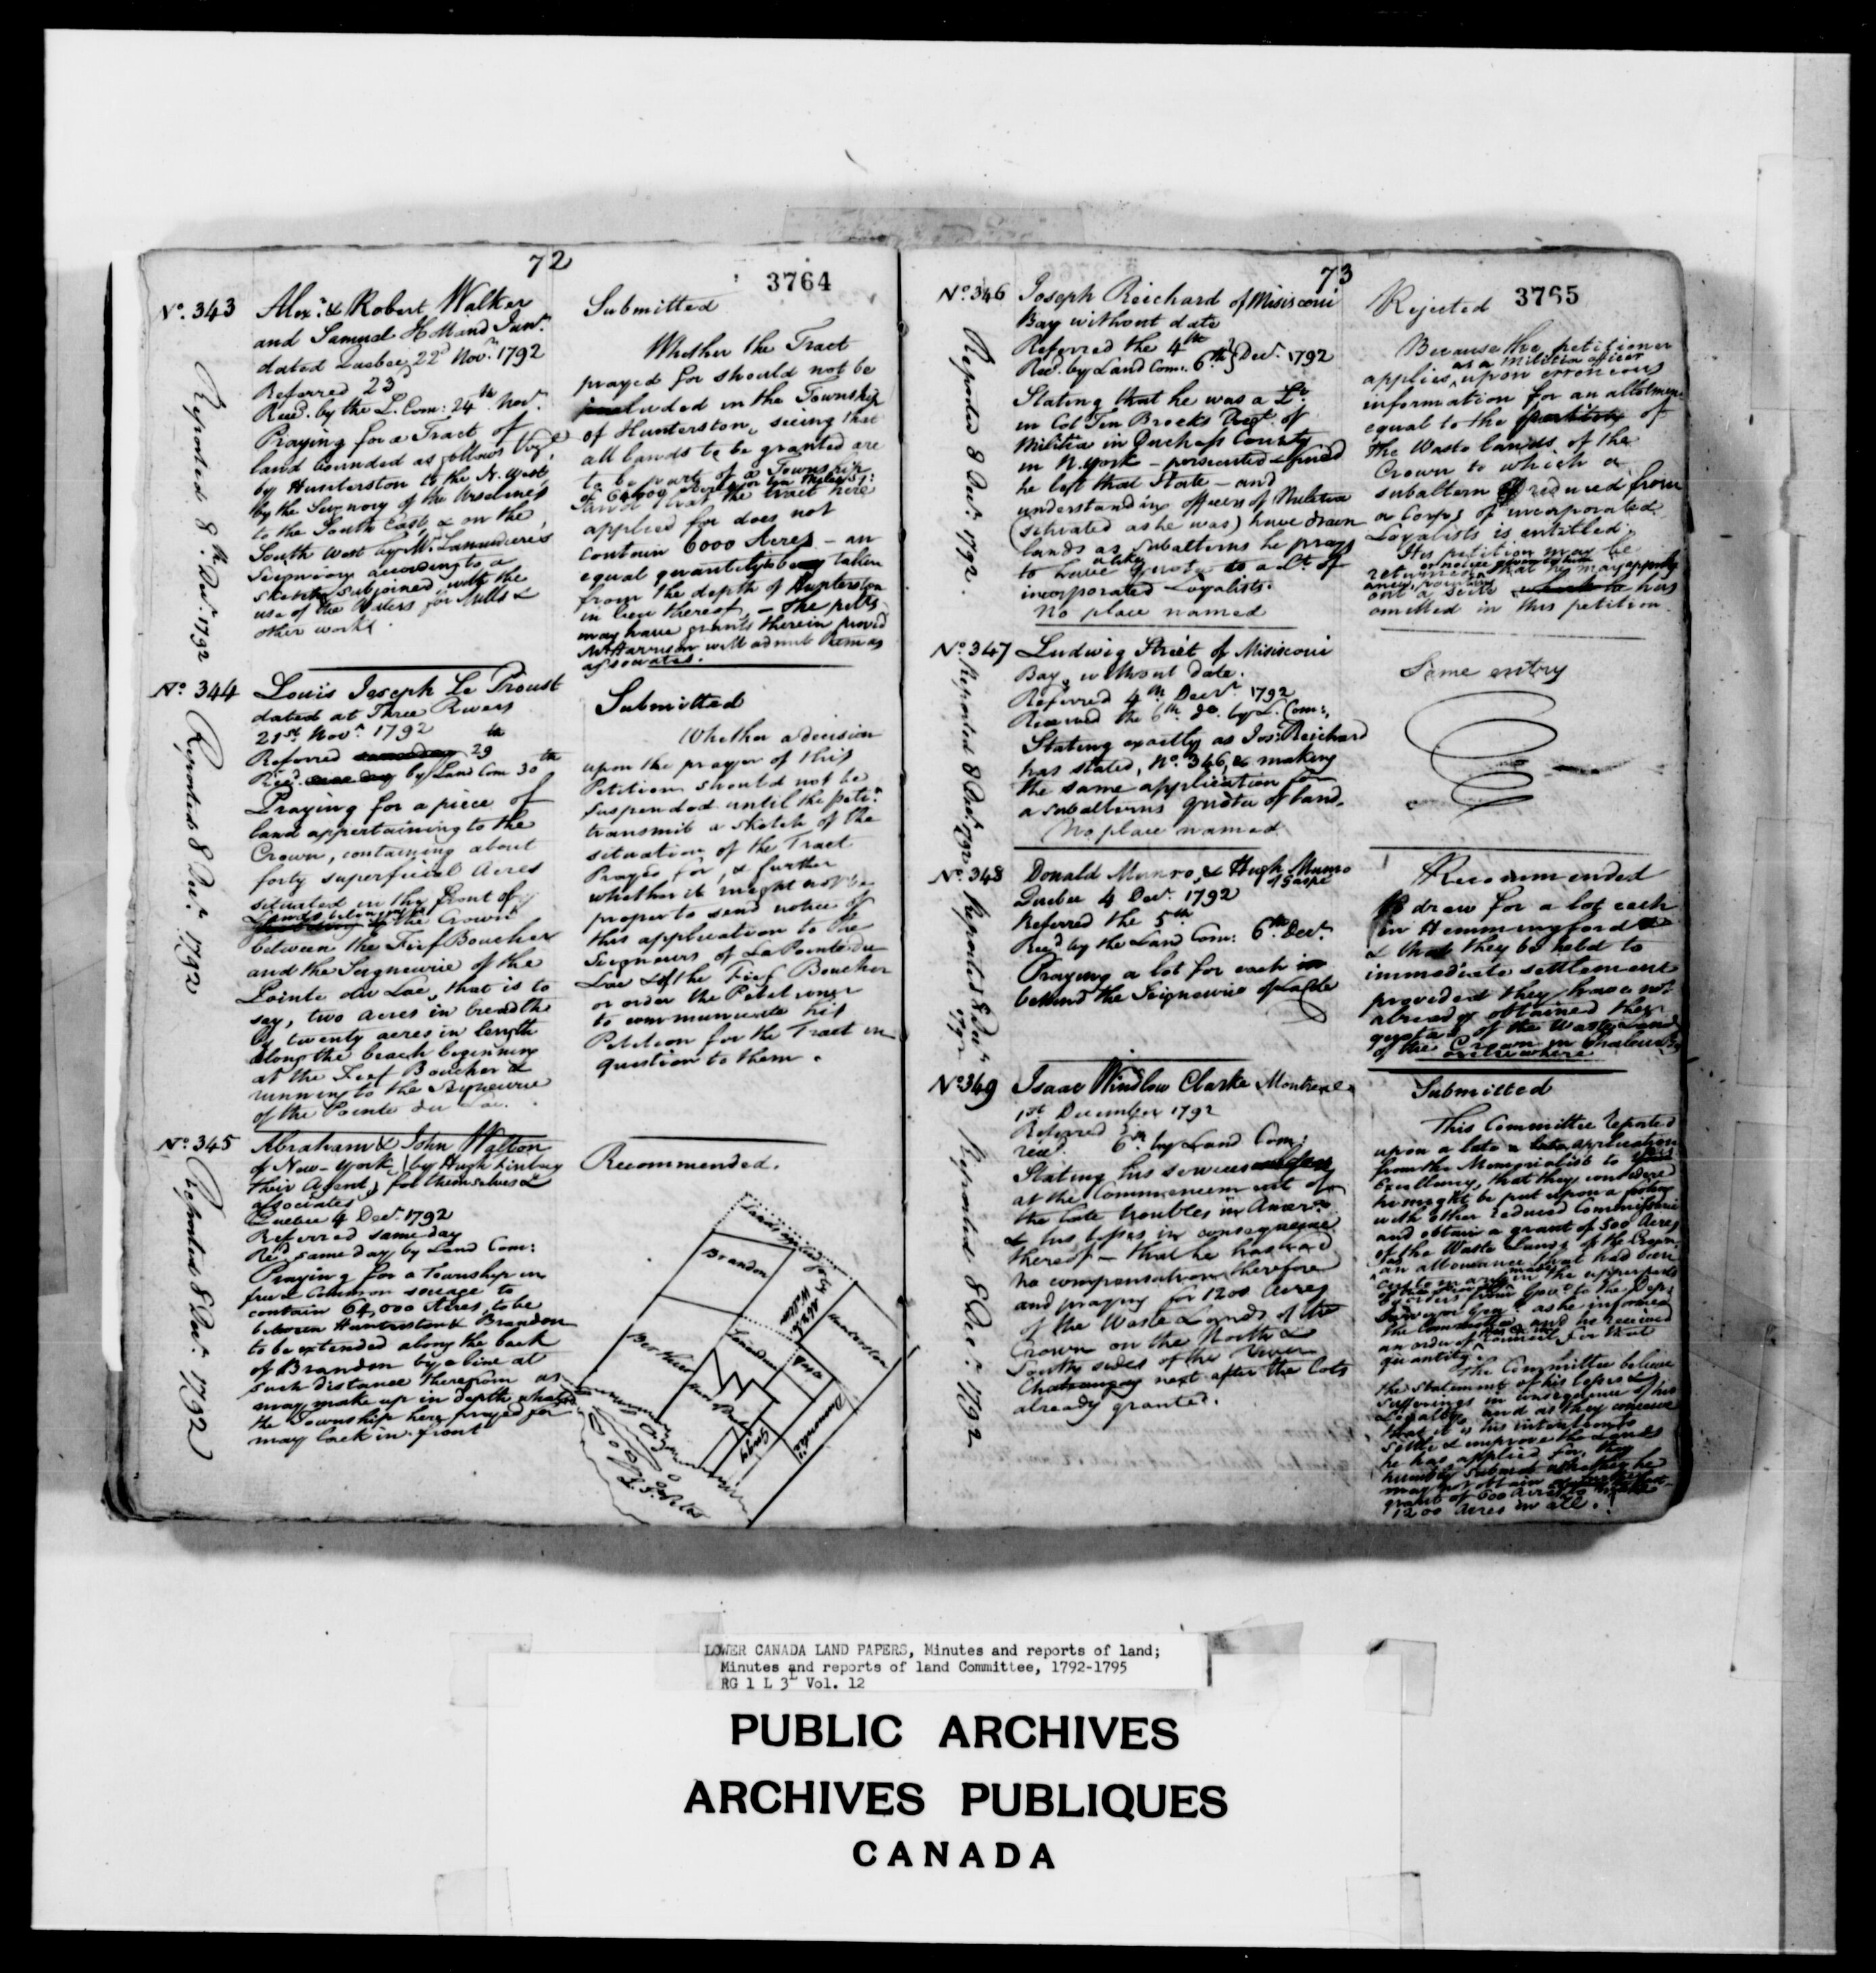 72
3764
No. 343
Alexr. & Robert Walker
and Samuel Holland Junr.
dated Quebec 22d Novr. 1792
Referred 23
Recd. by the L. Com: 24th Novr.
Praying for a Tract of
land bounded as follows Vizt.
by Hunterston to the N. West,
by the Signory of the Ursulines
to the South East, & on the
South West by Mr. Lanaudiere's
Seigniory according to a
sketch subjoined with the
use of the Waters for Mills &
other works.
Reported 8th Decr. 1792
Submitted
Whether the Tract
prayed for should not be
included in the Township
of Hunterston, seeing that
all lands to be granted are
to be parts of a Township
of 64,000 Acres or ten Miles Sqr:
and that the tract here
applied for does not
contain 6000 Acres - an
equal quantity to be taken
from the depth of Hunterston
in lieu thereof, - The petrs.
may have grants therein provd
Mr Harrison will admit them as
associates.
No. 344
Louis Joseph Le Proust
dated at Three Rivers
21st. Novr. 1792
Referred same day 29th
Recd. same day by Land Com 30th
Praying for a piece of
land appertaining to the
Crown, containing about
forty superficial Acres
situated in the front of
Lands belonging to the Crown
between the Fief Boucher
and the Seigneurie of the
Pointe du Lac, that is to
say, two acres in breadth
by twenty acres in length
along the beach beginning
at the Fief Boucher &
running to the Seigneurie
of the Pointe du Lac.
Reported 8 Decr. 1792
Submitted
Whether a decision
upon the prayer of this
Petition should not be
suspended until the petr.
transmit a sketch of the
situation of the Tract
Prayed for, & further
whether it might not be
proper to send notice of
this application to the
Seigneurs of La Pointe du
Lac & of the Fief Boucher
or order the Petitioner
to communicate his
Petition for the Tract in
question to them.
No. 345
Abraham & John Walton
of New-York (by Hugh Finlay
their Agent) for themselves &
associates
Quebec 4 Decr. 1792
Referred same day
Recd. same day by Land Com:
Praying for a Township in
free & Common socage to
contain 64,000 Acres, to be
between Hunterston & Brandon
to be extended along the back
of Brandon by a line at
such distance therefrom as
may make up in depth what
the Township here prayed for
may lack in front
Reported 8 Decr. 1792
Recommended.
Brandon
Hunterston
Berthier
Lanaudiere
Dumontier
L. St. Peter
73
3765
No. 346
Joseph Reichard of Misiscoui
Bay without date
Referred the 4th
Recd. by Land Com: 6th } Decr. 1792
Stating that he was a Lt.
in Col Ten Broeks Regt. of
Militia in Duchess County
in N. York - persecuted & fined
he left that State - and
understanding officers of Militia
(situated as he was) have drawn
lands as Subalterns he prays
to have a like quota to a Lt. of
incorporated Loyalists.
No place named
Reported 8 Decr. 1792.
Rejected
Because the petitioner
applies as a Militia officer upon erroneous
information for an allotment
equal to the portion of
the Waste lands of the
Crown to which a
subaltern reduced from
a Corps of incorporated
Loyalists is entitled.
His petition may be
returned that he may apply
anew, pointing
out a scite which he has
omitted in this petition.
No. 347
Ludwig Streit of Misiscoui
Bay, without date.
Referred 4th Decr. 1792
Received the 6th do. by L. Com:
Stating exactly as Jos: Reichard
has stated, No. 346, & making
the same application for
a subalterns quota of land.
No place named
Reported 8 Decr. 1792
Same entry
No. 348
Donald Munro, & Hugh Munro
of Gaspé
Quebec 4 Decr. 1792
Referred the 5th
Recd by the Land Com: 6th Decr.
Praying a lot for each in
behind the Seigneurie of LaColle
Reported 8 Decr. 1792
Recommended
To draw for a lot each
in Hemmingford
& that they be held to
immediate settlement
provided they have not
already obtained their
quota of the Waste Lands
of the Crown in Chaleur Bay
or elsewhere
No. 349
Isaac Winslow Clarke Montreal
1st December 1792
Referred 5
recd. 6th. by Land Com:
Stating his services
at the Commencement of
the late troubles in America
& his losses in consequence
thereof - that he has had
no compensation therefore
and praying for 1200 Acres
of the Waste Lands of the
Crown on the North &
South sides of the River
Chateaugay next after the Lots
already granted.
Reported 8 Decr. 1792
Submitted
This Committee reported
upon a late application
from the Memorialist to Your
Excellency, that they considered
he might be put upon a footing
with other reduced Commissaries
and obtain a grant of 500 Acres
of the Waste Lands of the Crown
an allowance that had been
customary made in the upper parts
Surveyor Genl. as he informed
the Committee and he received
an order of Council for that
quantity.
The Committee believe
the statement of his losses &
sufferings in consequence of his
Loyalty, and as they conceive
that it is his intention to
settle & improve the Lands
he has applied for, they
humbly submit whether he
may not obtain a further
grant of 600 Acres to make
1200 Acres in all.
LOWER CANADA LAND PAPERS, Minutes and reports of land;
Minutes and reports of land Committee, 1792-1795
RG 1 L 3L Vol. 12
PUBLIC ARCHIVES
ARCHIVES PUBLIQUES
CANADA